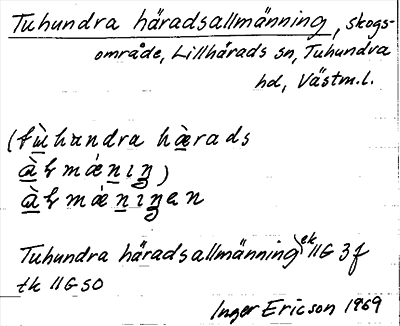 Tuhundra häradsallmänning, skogs-
område, Lillhärads sn, Tuhundra
hd, Västm.l.
(tùhundra hæ̀rads
àꞎmániŋ)
àꞎmániŋen
Tuhundra häradsallmänning ek 11G 3f
tk 11G SO
Inger Ericson 1969